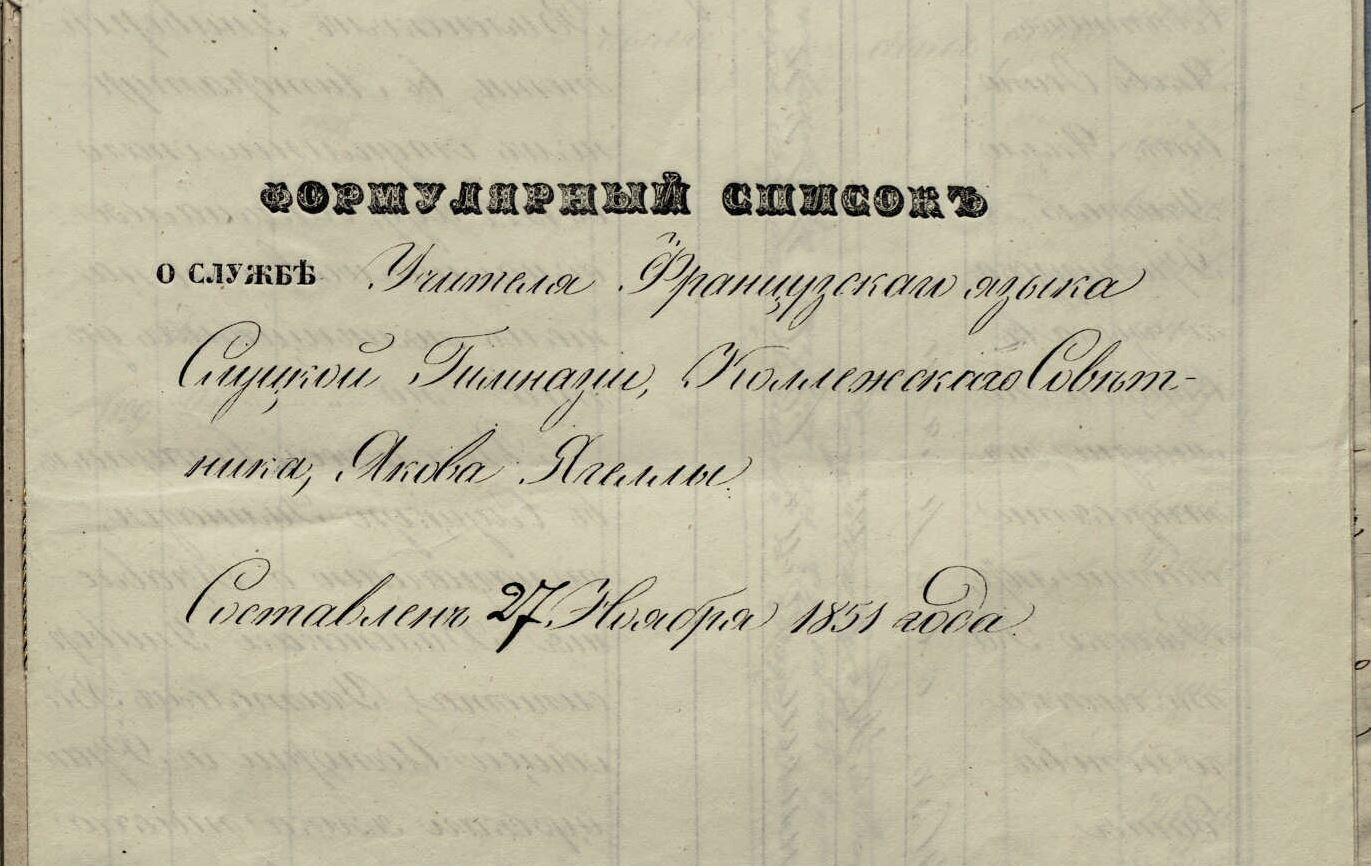 ФОРМУЛЯРНЫЙ СПИСОКЪ
О СЛУЖБѢ Учителя Французскаго языка
Слуцкой Гимназіи, Коллежскаго Совѣт-
ника, Якова Ягеллы.
Составленъ 27 Ноября 1851 года.